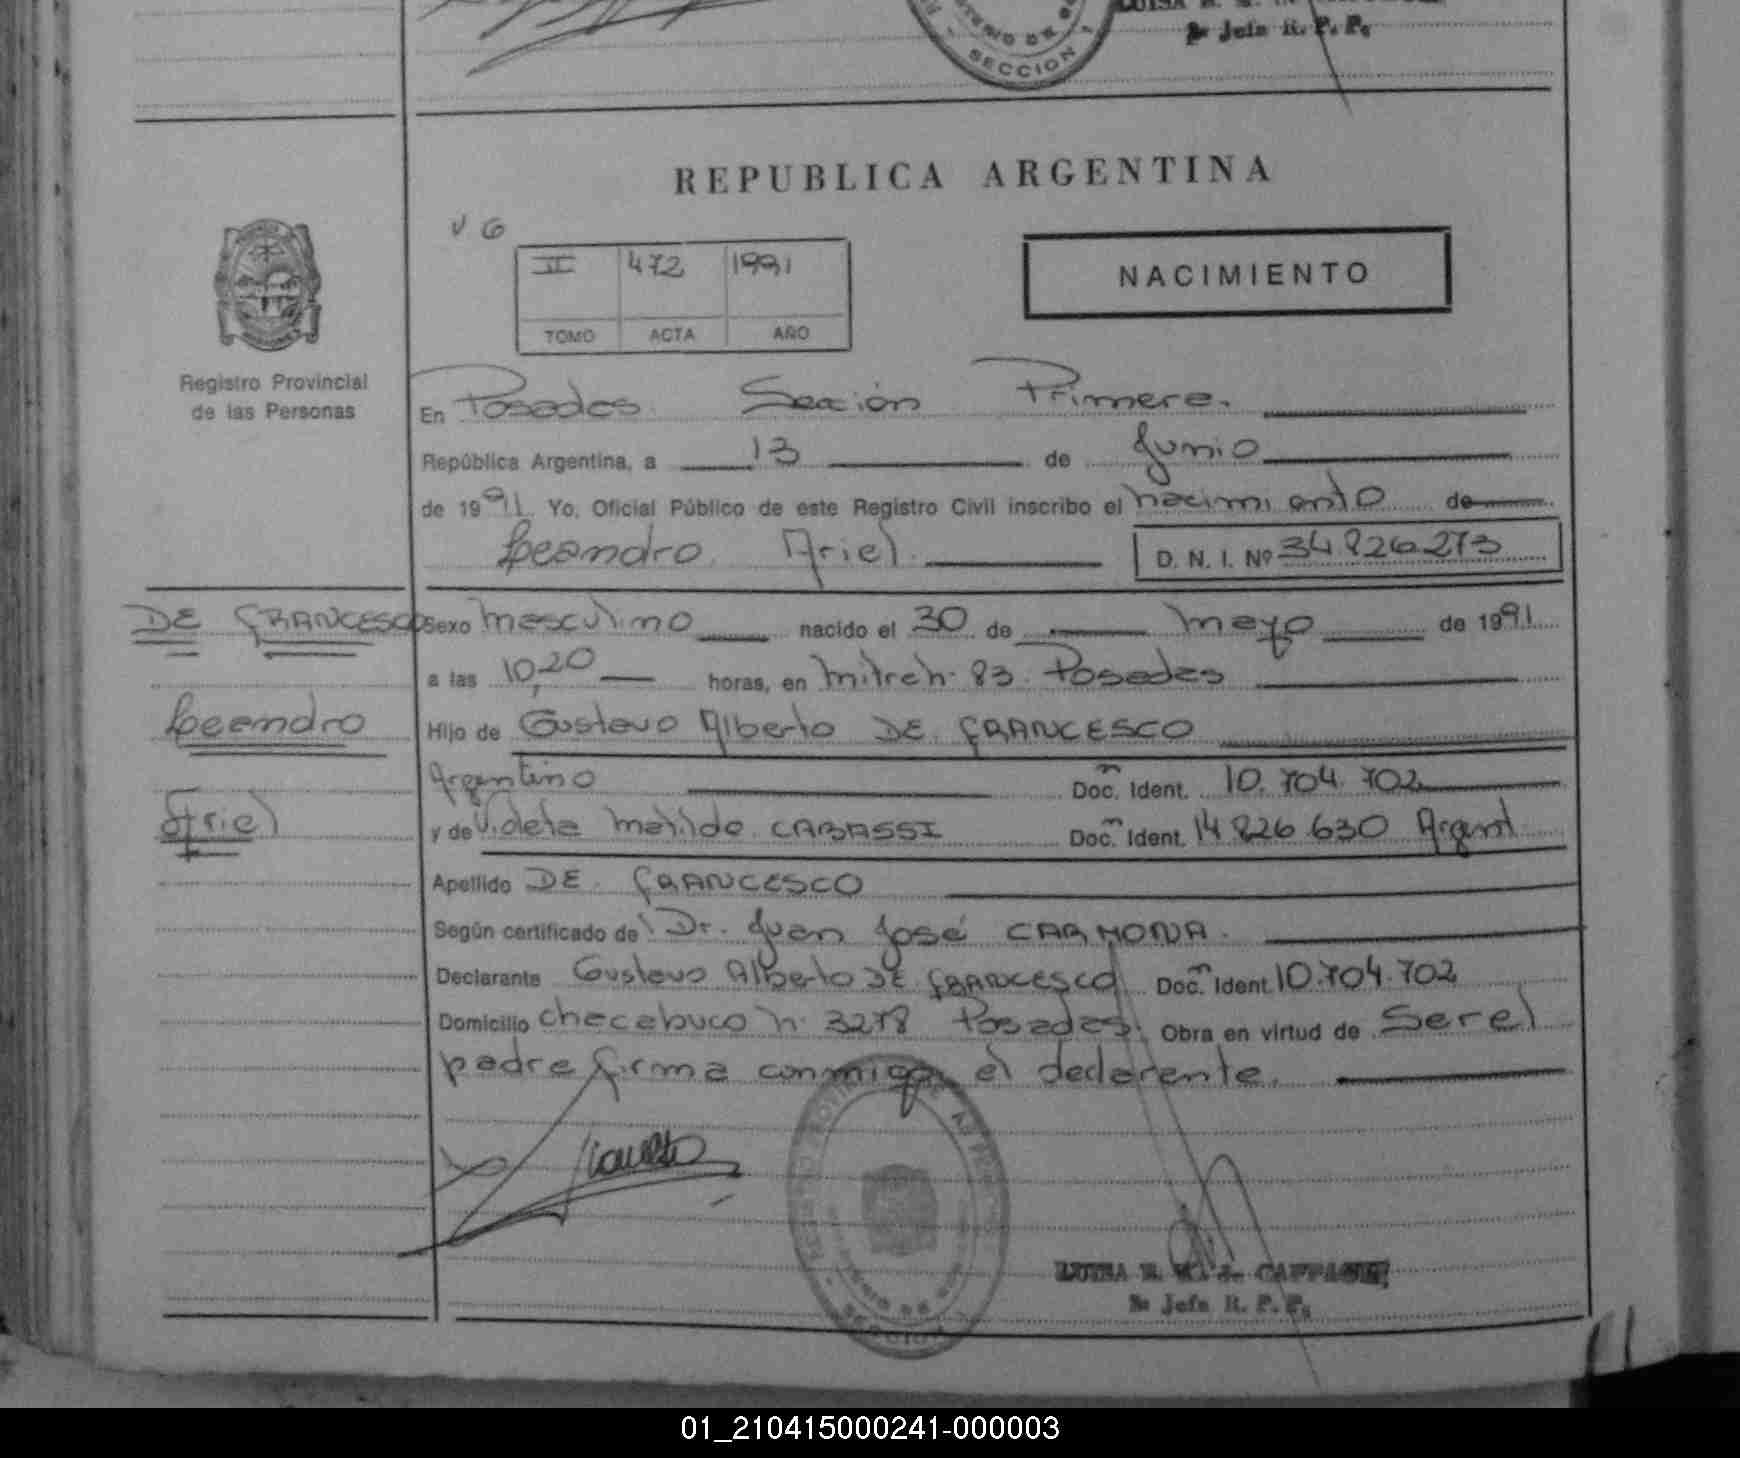 Jefe R. P. Ps
SECCION 1
REPUBLICA ARGENTINA
V 6
II 472 1991
TOMO ACTA AÑO
NACIMIENTO
Registro Provincial
de las Personas
En Posadas Sección Primera.
República Argentina, a 13 de Junio
de 1991. Yo, Oficial Público de este Registro Civil inscribo el nacimiento de
Leandro Ariel. D. N. I. Nº 34.826.273
DE FRANCESCO
Leandro
Ariel
Sexo masculino nacido el 30 de mayo de 1991
a las 10,20 horas, en Mitre n. 83. Posadas
Hijo de Gustavo Alberto DE FRANCESCO
Argentino Doc. Ident. 10.704.702
y de Violeta Matilde CABASSI Doc. Ident. 14.826.630 Argent.
Apellido DE FRANCESCO
Según certificado de Dr. Juan José CARMONA.
Declarante Gustavo Alberto DE FRANCESCO Doc. Ident. 10.704.702
Domicilio Chacabuco n. 3278 Posadas. Obra en virtud de Ser el
padre firma conmigo el declarante.
LUISA
Jefe R. P. Ps
01_210415000241-000003